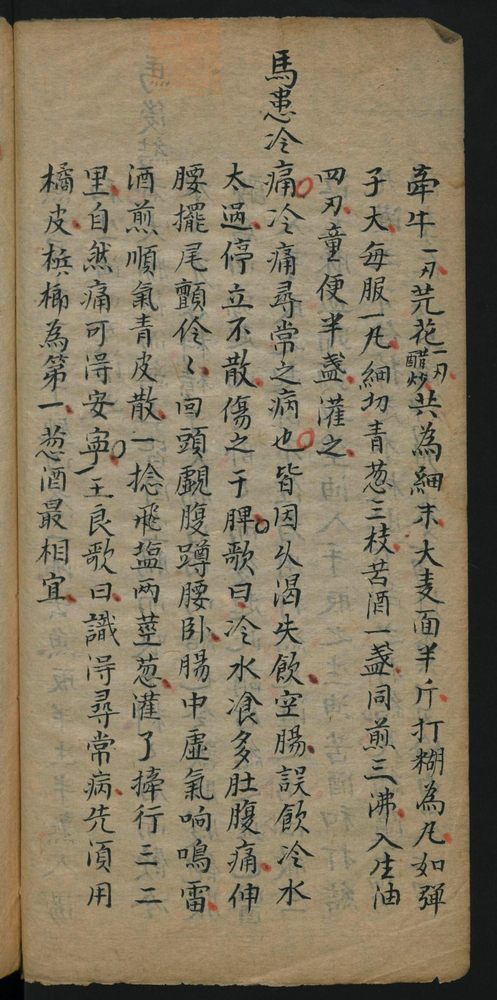 牵牛一刄芫花一刄醋炒共為細末大麦面半斤打糊為凡如弹
子大每服一凡細切青葱三枝苦酒一盏同煎三沸入生油
四刄童便半盏灌之
馬患冷痛冷痛尋常之病也皆因久渴失飲空腸誤飲冷水
太過停立不散傷之于脾歌曰冷水飡多肚腹痛伸
腰擺尾顫伶〻囬頭覷腹蹲腰卧腸中虛氣响鳴雷
酒煎順氣青皮散一捻飛盐两莖葱灌了捧行三二
里自然痛可淂安寧王良歌曰識淂尋常病先湏用
橘皮梹榔為第一葱酒最相宜